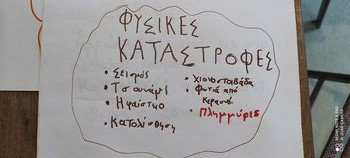 ΦΥΣΙΚΕΣ
ΚΑΤΑΣΤΡΟΦΕΣ
• Σεισμός
• Τσουνάμι
• Ηφαίστειο
• Κατολίσθηση
• Χιονοστιβάδα
• Φωτιά από
κεραυνό
• Πλημμύρες